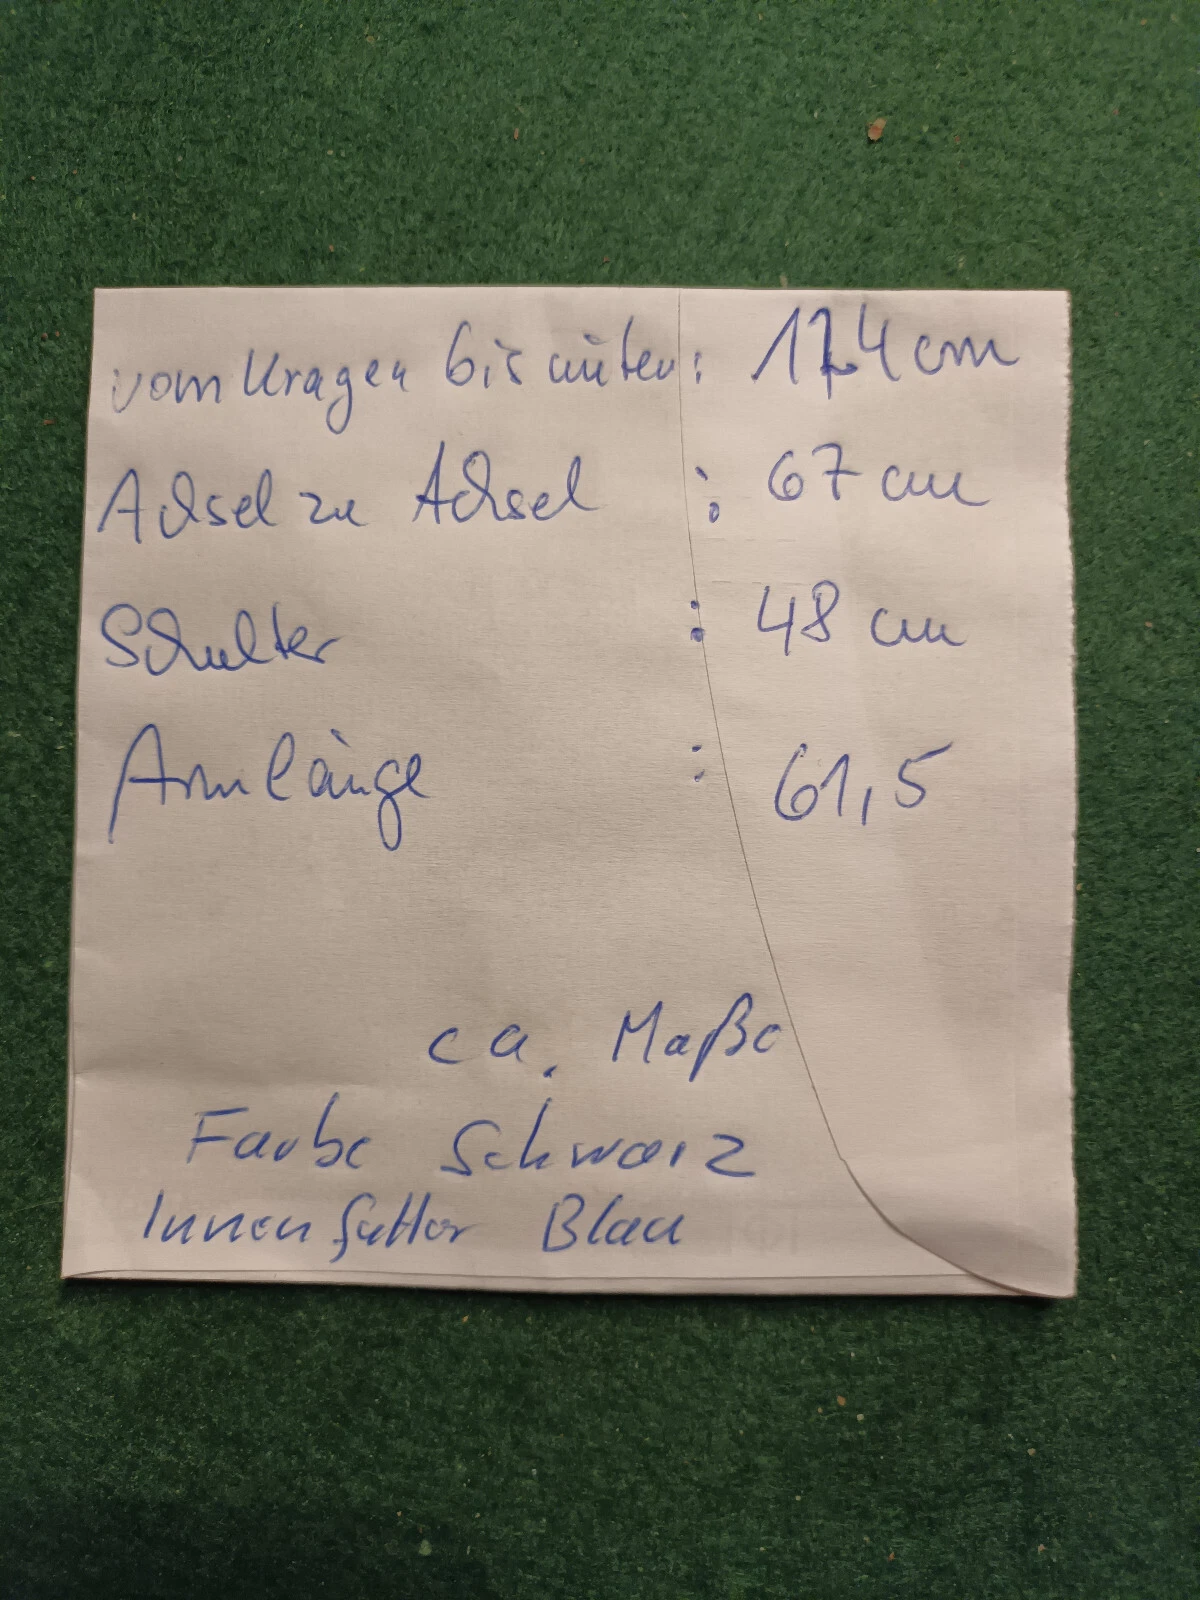 vom Kragen bis unten: 124 cm
Achsel zu Achsel : 67 cm
Schulter : 48 cm
Armlänge : 61,5
ca. Maße
Farbe Schwarz
Innenfutter Blau